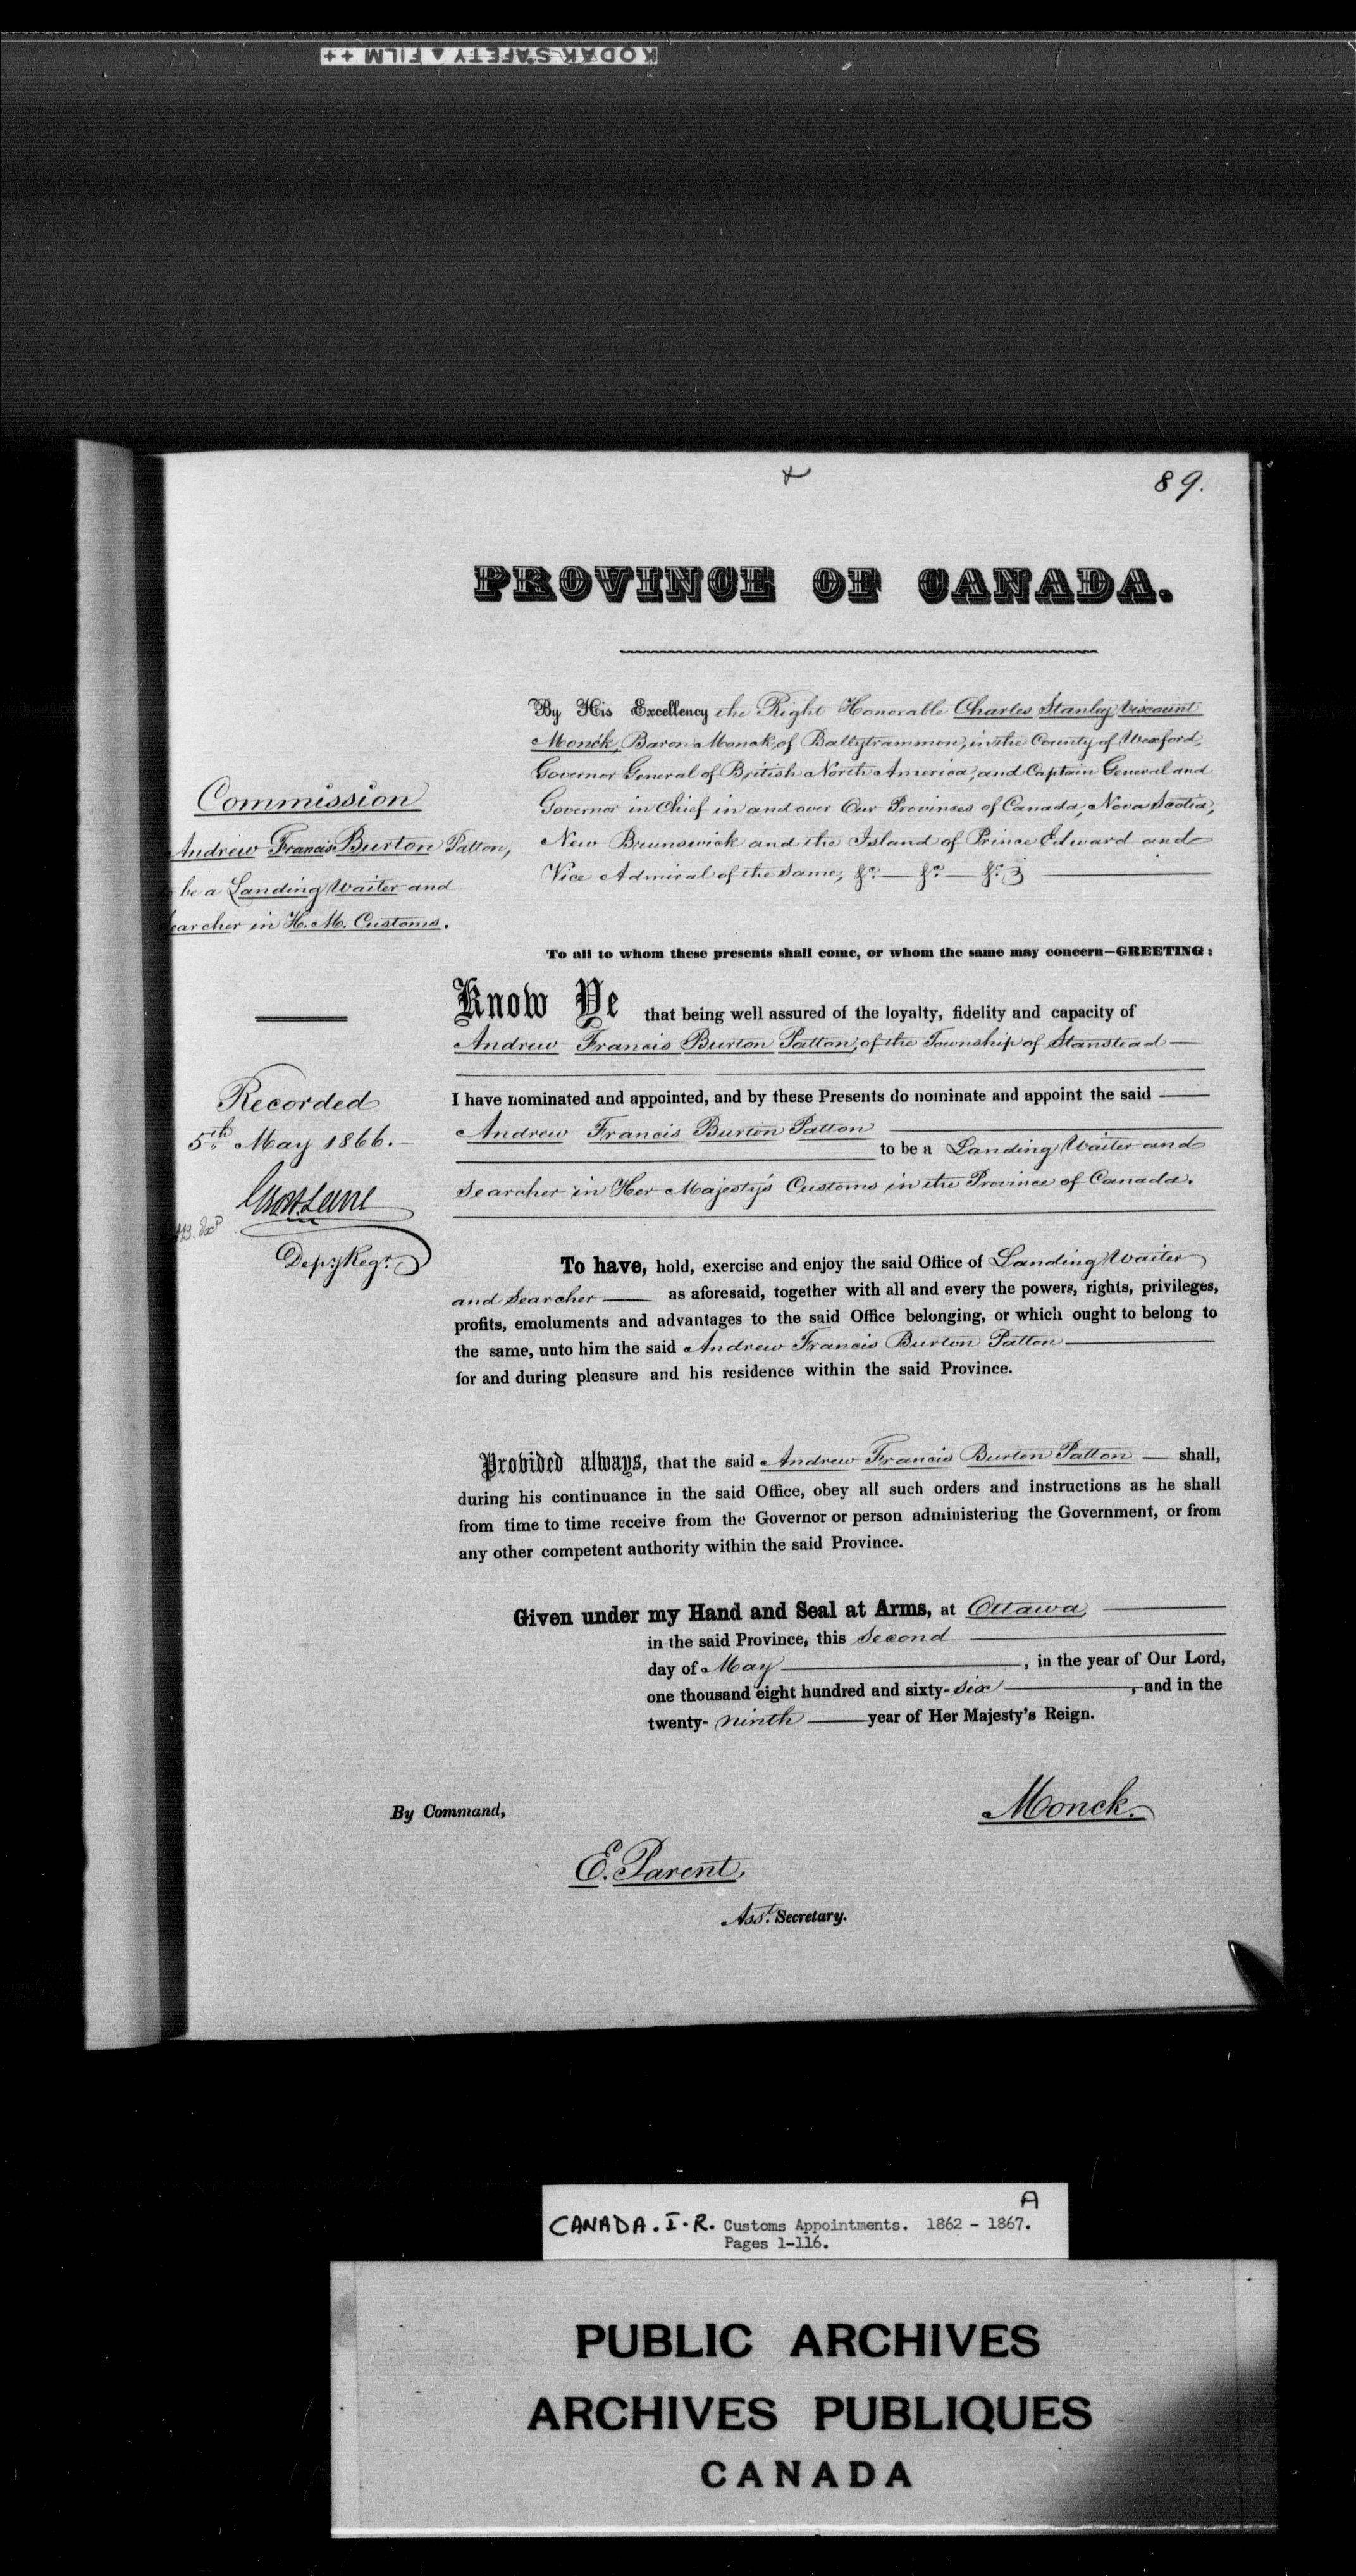 KODAK SAFETY ▲ FILM ++
89.
PROVINCE OF CANADA.
By His Excellency the Right Honorable Charles Stanley Viscount
Monck, Baron Monck, of Ballytrammon, in the County of Wexford,
Governor General of British North America, and Captain General and
Governor in Chief in and over Our Provinces of Canada, Nova Scotia,
New Brunswick and the Island of Prince Edward and
Vice Admiral of the Same, &c. — &c. — &c.
Commission
Andrew Francis Burton Patton,
to be a Landing Waiter and
Searcher in H. M. Customs.
To all to whom these presents shall come, or whom the same may concern—GREETING:
Know Ye that being well assured of the loyalty, fidelity and capacity of
Andrew Francis Burton Patton, of the Township of Stanstead
I have nominated and appointed, and by these Presents do nominate and appoint the said
Andrew Francis Burton Patton
to be a Landing Waiter and
Searcher in Her Majesty's Customs in the Province of Canada.
Recorded
5th May 1866.
Depy Regr.
To have, hold, exercise and enjoy the said Office of Landing Waiter
and Searcher — as aforesaid, together with all and every the powers, rights, privileges,
profits, emoluments and advantages to the said Office belonging, or which ought to belong to
the same, unto him the said Andrew Francis Burton Patton
for and during pleasure and his residence within the said Province.
Provided always, that the said Andrew Francis Burton Patton — shall,
during his continuance in the said Office, obey all such orders and instructions as he shall
from time to time receive from the Governor or person administering the Government, or from
any other competent authority within the said Province.
Given under my Hand and Seal at Arms, at Ottawa,
in the said Province, this Second
day of May, in the year of Our Lord,
one thousand eight hundred and sixty-six, and in the
twenty-ninth year of Her Majesty's Reign.
Monck.
By Command,
E. Parent,
Asst. Secretary.
A
CANADA. I-R. Customs Appointments. 1862 - 1867.
Pages 1-116.
PUBLIC ARCHIVES
ARCHIVES PUBLIQUES
CANADA